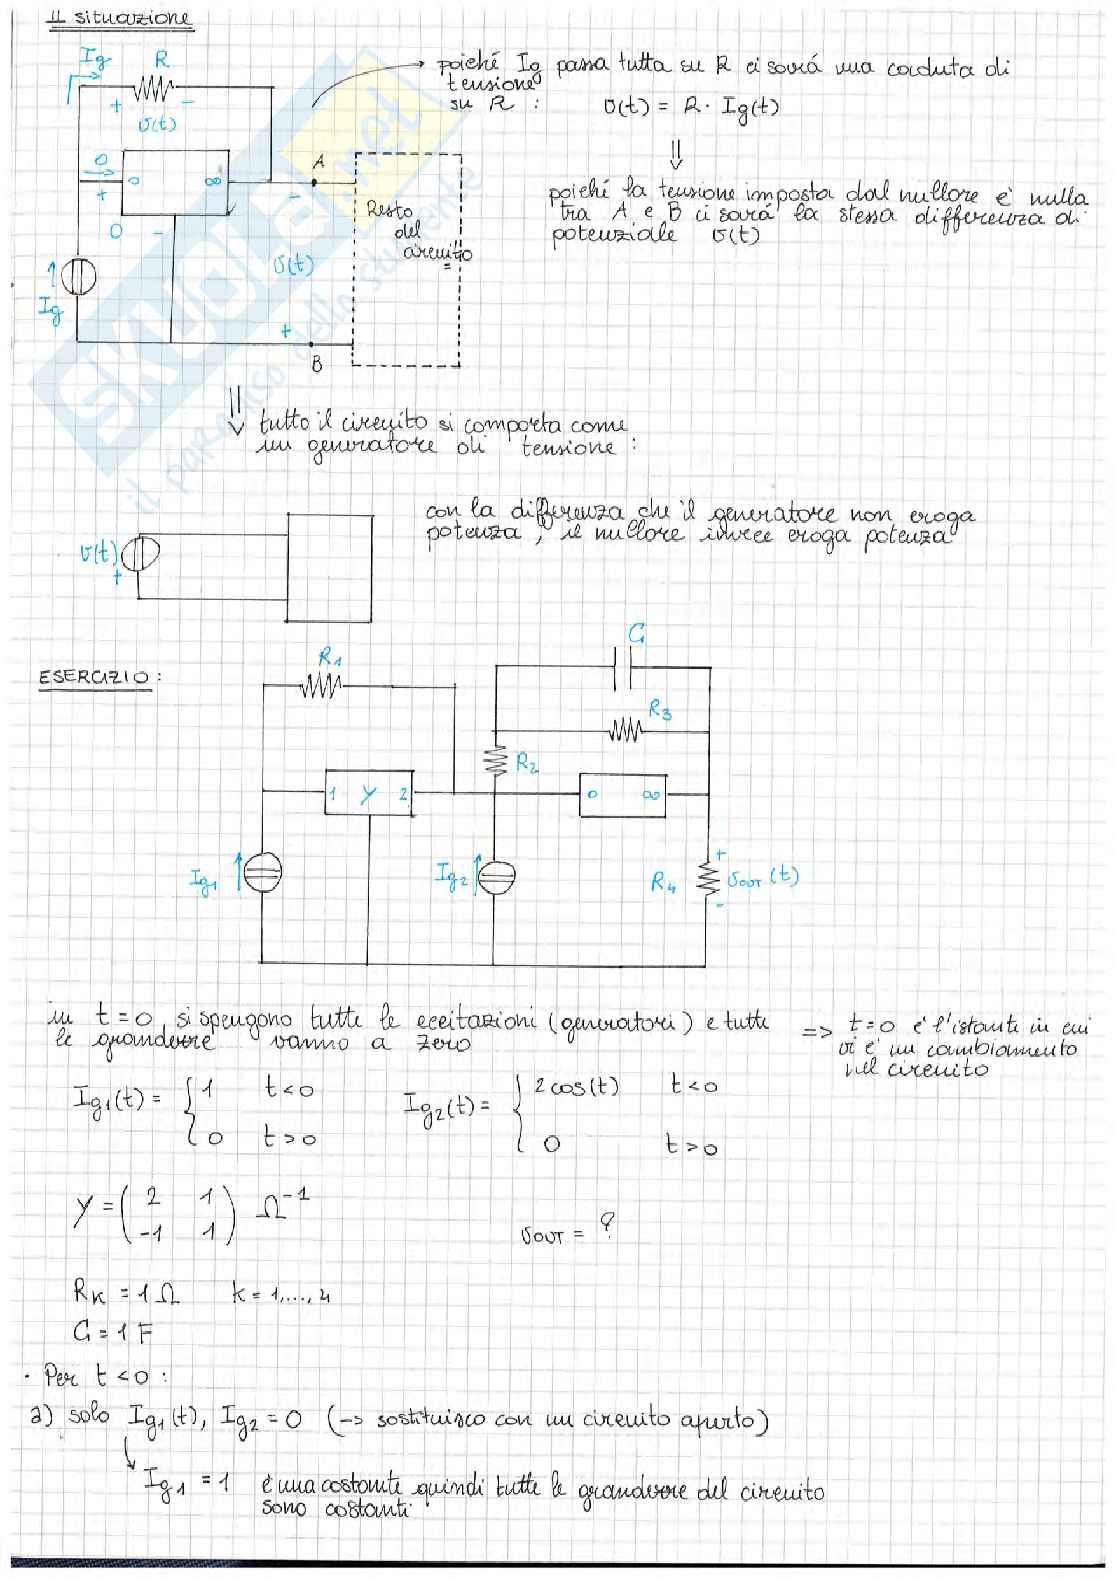 II situazione
Ig R
+ -
v(t)
poiché Ig passa tutta su R ci sarà una caduta di
tensione
su R : v(t) = R · Ig(t)
⇓
poiché la tensione imposta dal nullore è nulla
tra A e B ci sarà la stessa differenza di
potenziale v(t)
0
o ∞
+
0 -
A
-
Resto
del
circuito
v(t)
Ig
+
B
⇓
tutto il circuito si comporta come
un generatore di tensione :
con la differenza che il generatore non eroga
potenza, il nullore invece eroga potenza
v(t)
+
ESERCIZIO :
C
R1
R3
R2
1 Y 2
o ∞
Ig1
Ig2
R4
+
vOUT(t)
-
in t = 0 si spengono tutte le eccitazioni (generatori) e tutte
le grandezze vanno a zero
=> t=0 è l'istante in cui
vi è un cambiamento
nel circuito
Ig1(t) = { 1 t<0
0 t>0
Ig2(t) = { 2cos(t) t<0
0 t>0
Y = ( 2 1
-1 1 ) Ω⁻¹
vOUT = ?
RK = 1Ω k = 1,...,4
C = 1 F
· Per t<0 :
a) solo Ig1(t), Ig2 = 0 (-> sostituisco con un circuito aperto)
Ig1 = 1 è una costante quindi tutte le grandezze del circuito
sono costanti
SKUOLA.net
il paradiso dello studente